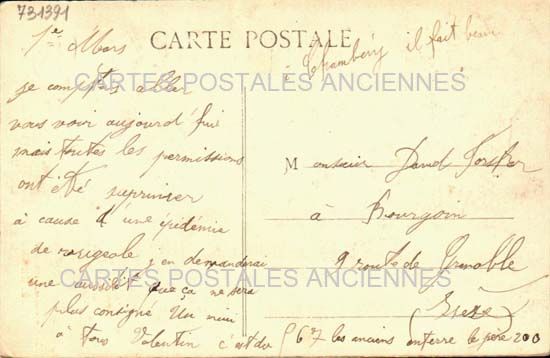 731391
1er Mars
CARTE POSTALE
à Chambéry il fait beau
CARTES POSTALES ANCIENNES
je comptais aller
vous voir aujourd'hui
mais toutes les permissions
ont été
à cause d'une épidémie
de rougeole j'en demanderai
une aussitôt que ça ne sera
plus consigné Un
à tous Valentin c'est du les anciens enterre le père 200
Monsieur David
à Bourgoin
9 route de Grenoble
Isère
CARTES POSTALES ANCIENNES